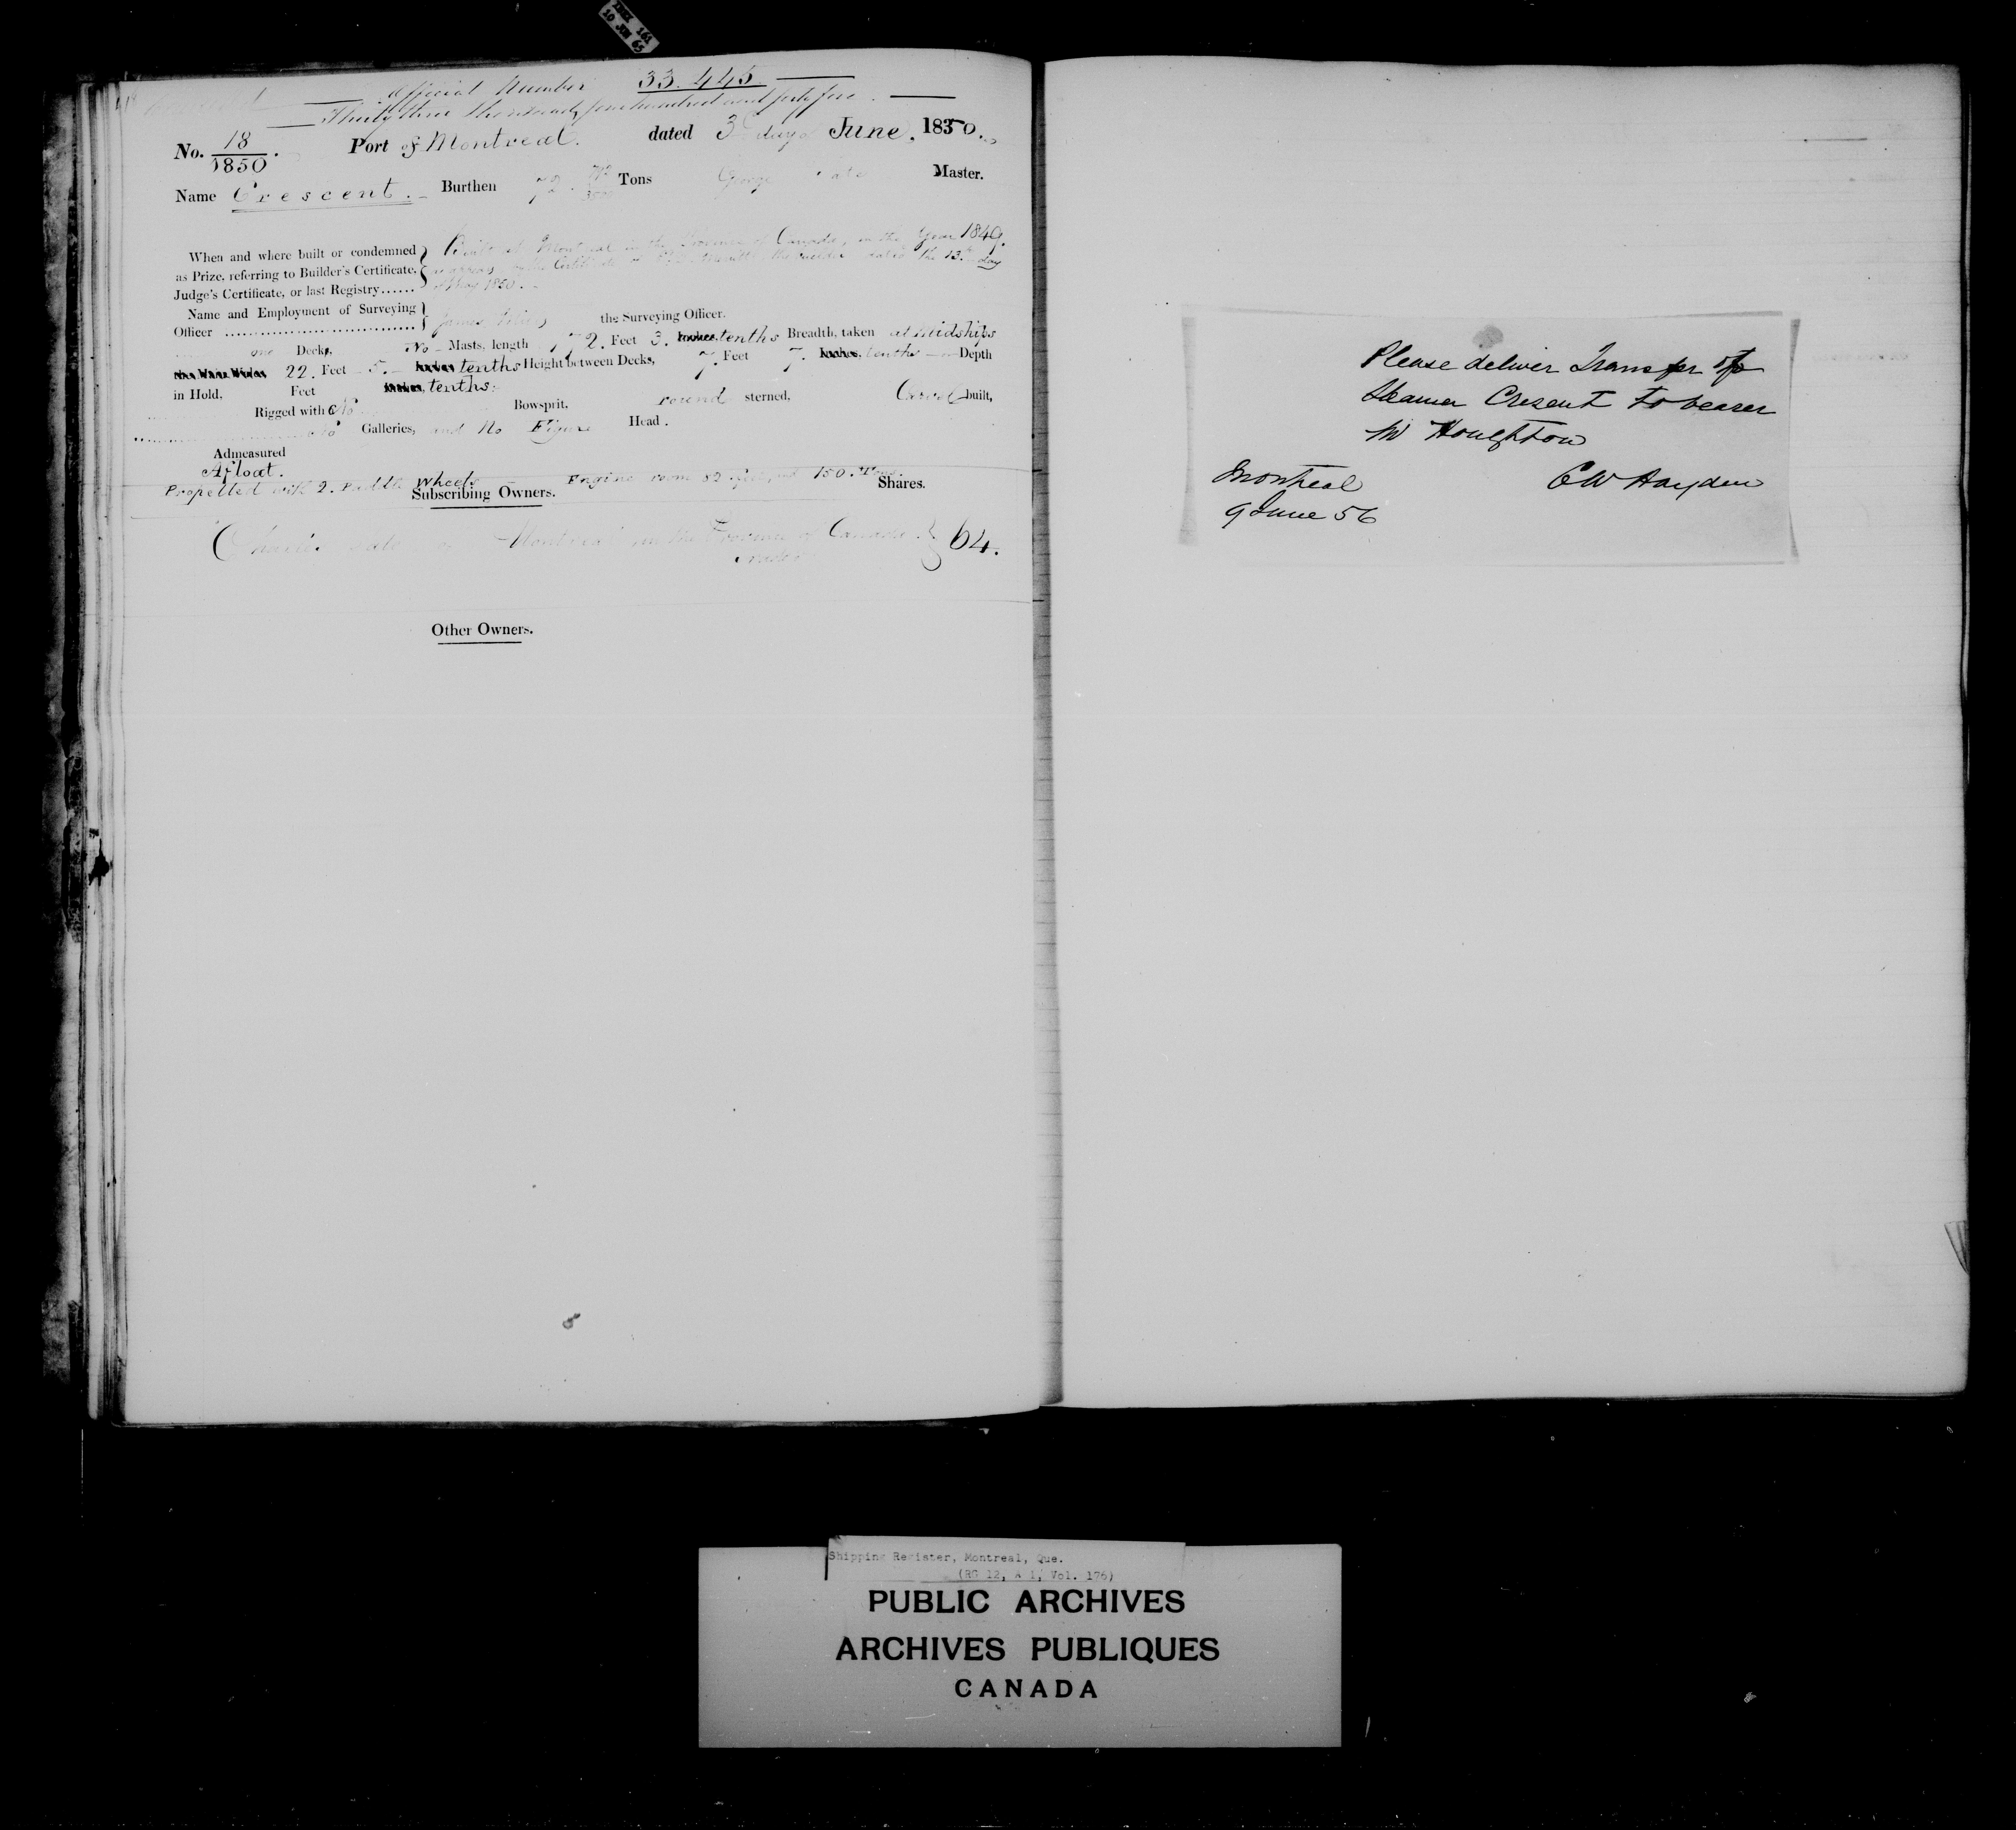 INDEX 161
10 JUN 65
Official Number 33.445
Thirty three thousand, four hundred and forty five.
No. 18/1850. Port of Montreal. dated 3d day of June, 1850.
Name Crescent. Burthen 72 Tons George Master.
When and where built or condemned
as Prize, referring to Builder's Certificate,
Judge's Certificate, or last Registry......
Built at Montreal in the Province of Canada, in the Year 1849.
as appears by the Certificate of the builder dated the 13th day
of May 1850.
Name and Employment of Surveying
Officer
James the Surveying Officer.
one Deck, No Masts, length 2. Feet 3. tenths Breadth, taken at Midships
22. Feet 5. tenths Height between Decks, 7. Feet 7. tenths Depth
in Hold, Feet tenths.
Rigged with No Bowsprit, round sterned, Carvel built,
No Galleries, and No Figure Head.
Admeasured
Afloat.
Propelled with 2. Paddle Wheels Engine room 52 feet, and 150. Tons.
Subscribing Owners. Shares.
Charles of Montreal in the Province of Canada } 64.
Other Owners.
Please deliver Transfer of
Steamer Cresent to bearer
W Houghton
Montreal C W Hayden
9 June 56
Shipping Register, Montreal, Que.
(RG 12, A 1, Vol. 176)
PUBLIC ARCHIVES
ARCHIVES PUBLIQUES
CANADA